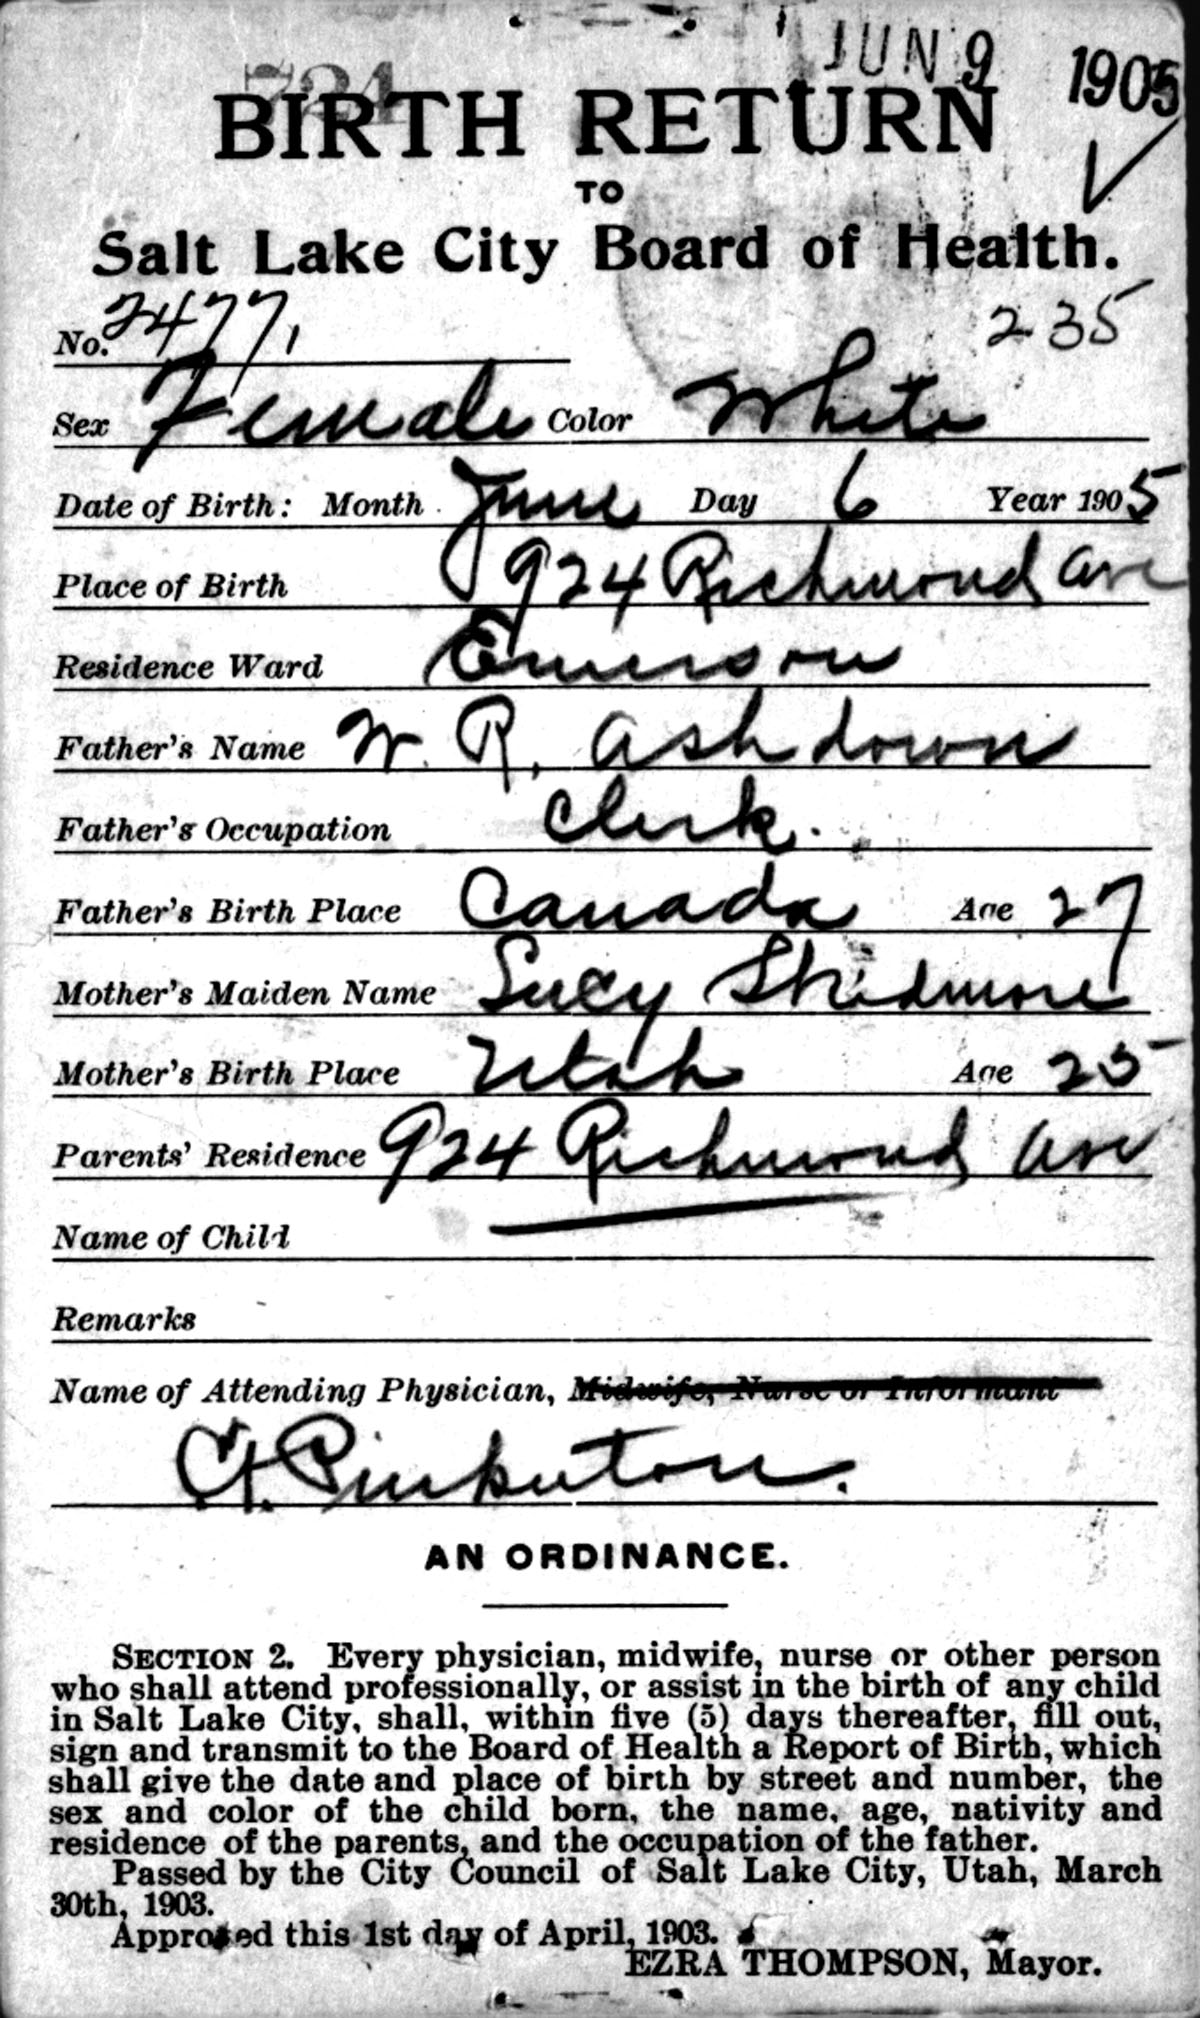 JUN 9 1905
724
BIRTH RETURN
TO
Salt Lake City Board of Health.
No. 2477, 235
Sex Female Color White
Date of Birth: Month June Day 6 Year 1905
Place of Birth 924 Richmond Ave
Residence Ward Emerson
Father's Name W. R. Ashdown
Father's Occupation Clerk.
Father's Birth Place Canada Age 27
Mother's Maiden Name Lucy Skidmore
Mother's Birth Place Utah Age 25
Parents' Residence 924 Richmond Ave
Name of Child
Remarks
Name of Attending Physician, Midwife, Nurse or Informant
Pinkerton.
AN ORDINANCE.
SECTION 2. Every physician, midwife, nurse or other person
who shall attend professionally, or assist in the birth of any child
in Salt Lake City, shall, within five (5) days thereafter, fill out,
sign and transmit to the Board of Health a Report of Birth, which
shall give the date and place of birth by street and number, the
sex and color of the child born, the name, age, nativity and
residence of the parents, and the occupation of the father.
Passed by the City Council of Salt Lake City, Utah, March
30th, 1903.
Approved this 1st day of April, 1903.
EZRA THOMPSON, Mayor.